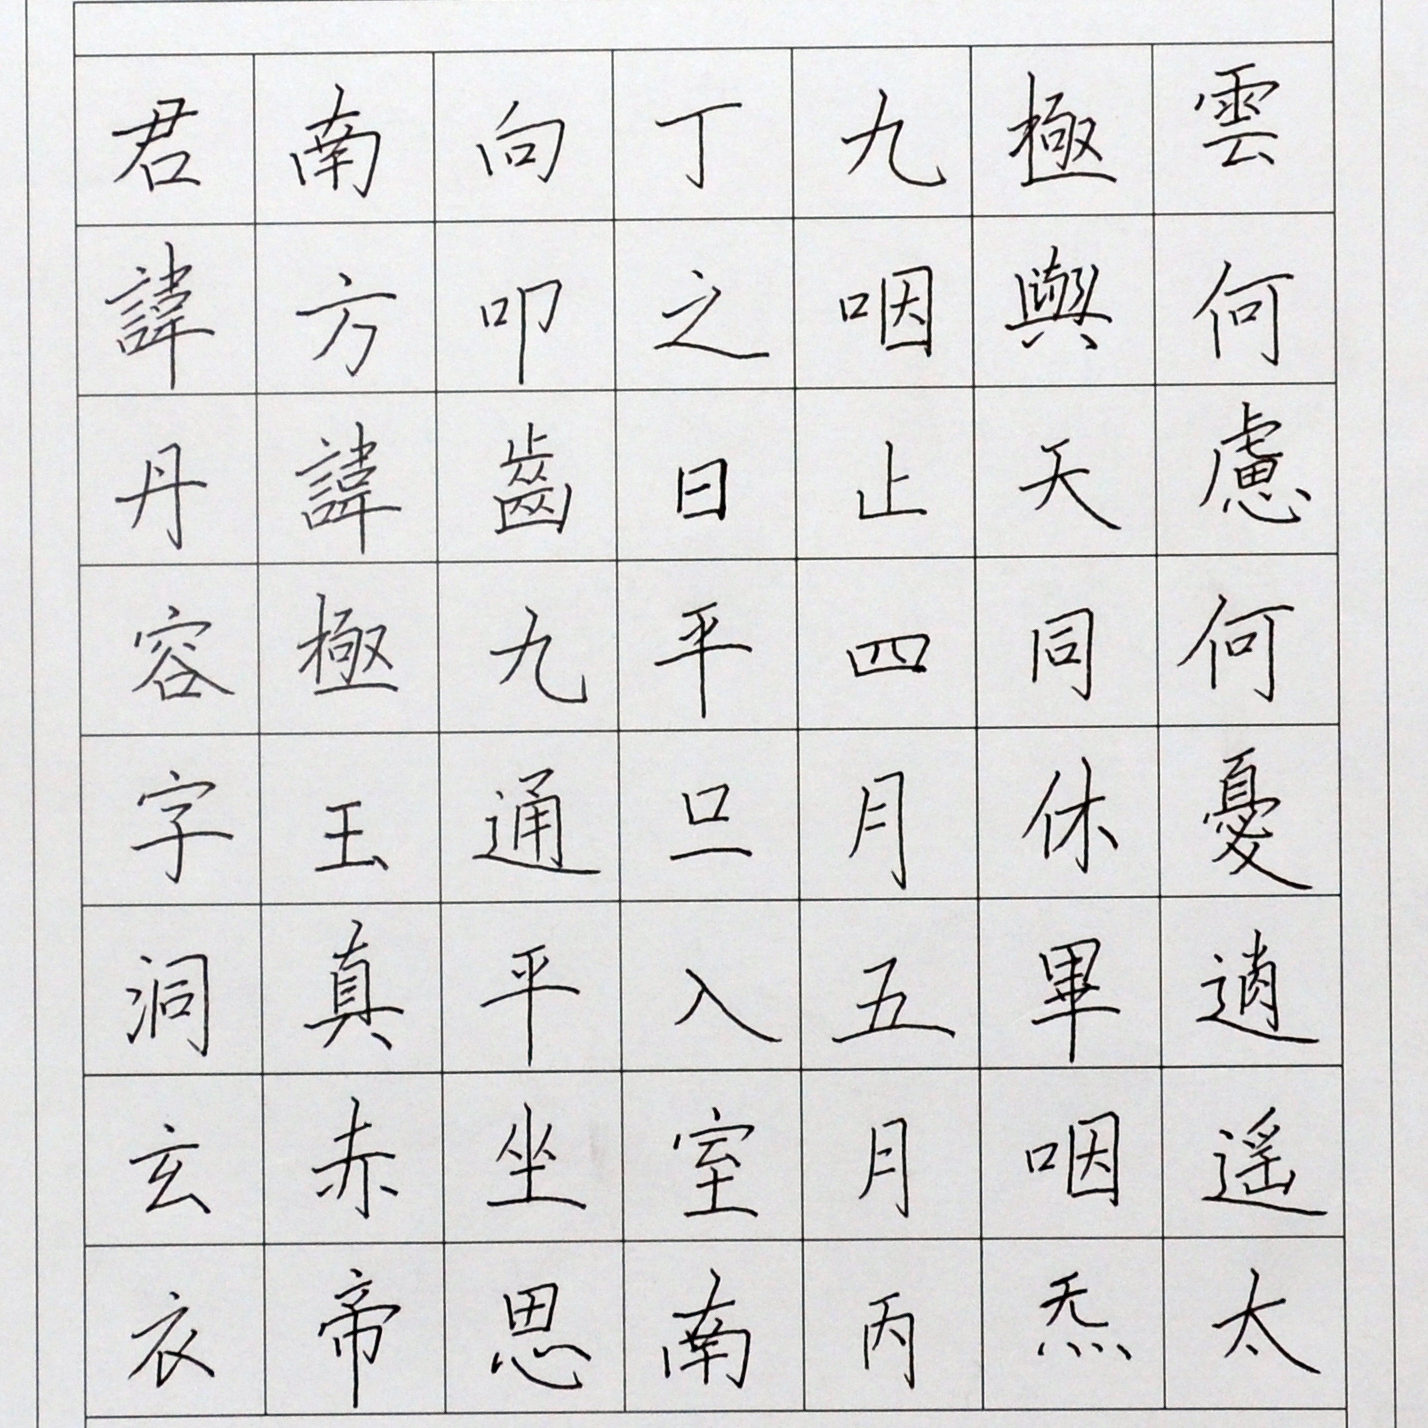 雲何慮何憂逍遙太
極與天同休畢咽炁
九咽止四月五月丙
丁之日平旦入室南
向叩齒九通平坐思
南方諱極王真赤帝
君諱丹容字洞玄衣